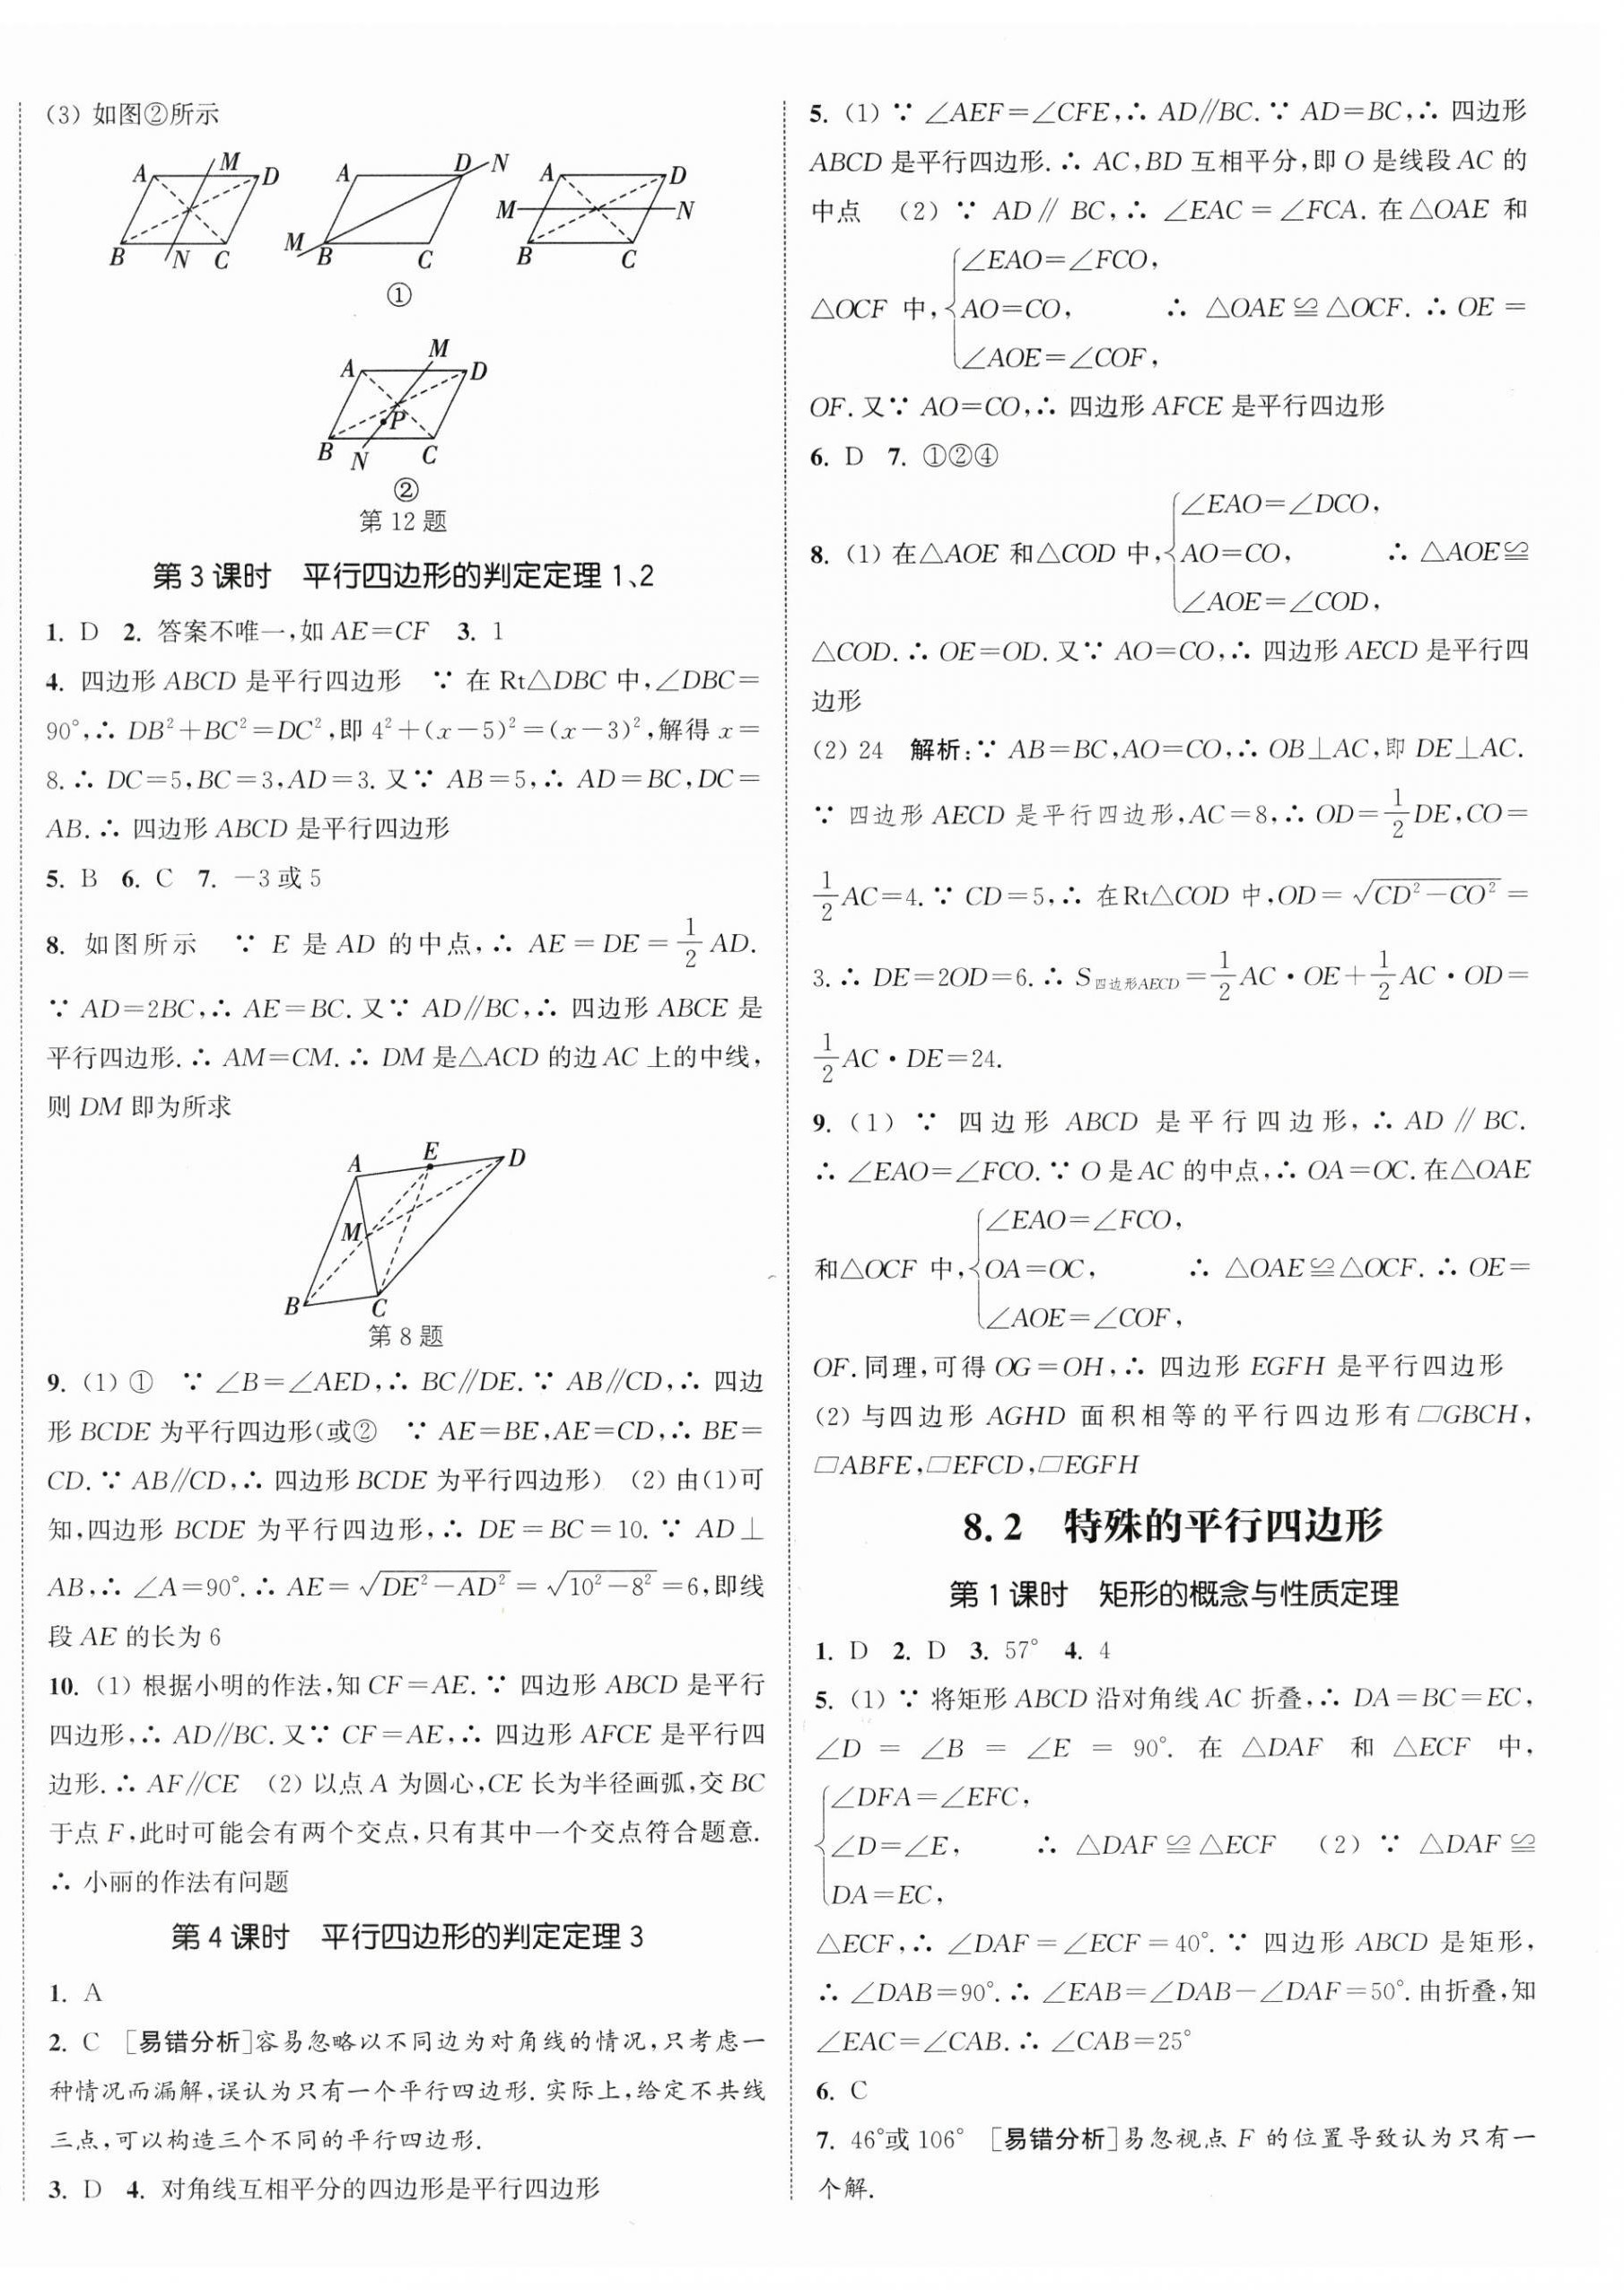 (3) 如图②所示
A M D
B N C
A D N
M B C
A D
M N
B C
①
M
A D
P
B N C
②
第 12 题
第 3 课时 平行四边形的判定定理 1、2
1. D 2. 答案不唯一,如 AE=CF 3. 1
4. 四边形 ABCD 是平行四边形 ∵ 在 Rt△DBC 中,∠DBC=
90°,∴ DB²+BC²=DC²,即 4²+(x-5)²=(x-3)²,解得 x=
8.∴ DC=5,BC=3,AD=3. 又∵ AB=5,∴ AD=BC,DC=
AB.∴ 四边形 ABCD 是平行四边形
5. B 6. C 7. -3 或 5
8. 如图所示 ∵ E 是 AD 的中点,∴ AE=DE=1/2 AD.
∵ AD=2BC,∴ AE=BC. 又∵ AD∥BC,∴ 四边形 ABCE 是
平行四边形.∴ AM=CM.∴ DM 是△ACD 的边 AC 上的中线,
则 DM 即为所求
A E D
M
B C
第 8 题
9. (1) ① ∵ ∠B=∠AED,∴ BC∥DE.∵ AB∥CD,∴ 四边
形 BCDE 为平行四边形(或② ∵ AE=BE,AE=CD,∴ BE=
CD.∵ AB∥CD,∴ 四边形 BCDE 为平行四边形) (2) 由(1)可
知,四边形 BCDE 为平行四边形,∴ DE=BC=10.∵ AD⊥
AB,∴ ∠A=90°.∴ AE=√(DE²-AD²)=√(10²-8²)=6,即线
段 AE 的长为 6
10. (1) 根据小明的作法,知 CF=AE.∵ 四边形 ABCD 是平行
四边形,∴ AD∥BC. 又∵ CF=AE,∴ 四边形 AFCE 是平行四
边形.∴ AF∥CE (2) 以点 A 为圆心,CE 长为半径画弧,交 BC
于点 F,此时可能会有两个交点,只有其中一个交点符合题意.
∴ 小丽的作法有问题
第 4 课时 平行四边形的判定定理 3
1. A
2. C [易错分析]容易忽略以不同边为对角线的情况,只考虑一
种情况而漏解,误认为只有一个平行四边形. 实际上,给定不共线
三点,可以构造三个不同的平行四边形.
3. D 4. 对角线互相平分的四边形是平行四边形
5. (1) ∵ ∠AEF=∠CFE,∴ AD∥BC.∵ AD=BC,∴ 四边形
ABCD 是平行四边形.∴ AC,BD 互相平分,即 O 是线段 AC 的
中点 (2) ∵ AD∥BC,∴ ∠EAC=∠FCA. 在△OAE 和
∠EAO=∠FCO,
△OCF 中,{AO=CO, ∴ △OAE≌△OCF.∴ OE=
∠AOE=∠COF,
OF. 又∵ AO=CO,∴ 四边形 AFCE 是平行四边形
6. D 7. ①②④
∠EAO=∠DCO,
8. (1) 在△AOE 和△COD 中,{AO=CO, ∴ △AOE≌
∠AOE=∠COD,
△COD.∴ OE=OD. 又∵ AO=CO,∴ 四边形 AECD 是平行四
边形
(2) 24 解析:∵ AB=BC,AO=CO,∴ OB⊥AC,即 DE⊥AC.
∵ 四边形 AECD 是平行四边形,AC=8,∴ OD=1/2 DE,CO=
1/2 AC=4.∵ CD=5,∴ 在Rt△COD 中,OD=√(CD²-CO²)=
3.∴ DE=2OD=6.∴ S四边形AECD=1/2 AC·OE+1/2 AC·OD=
1/2 AC·DE=24.
9. (1) ∵ 四边形 ABCD 是平行四边形,∴ AD∥BC.
∴ ∠EAO=∠FCO.∵ O 是 AC 的中点,∴ OA=OC. 在△OAE
∠EAO=∠FCO,
和△OCF 中,{OA=OC, ∴ △OAE≌△OCF.∴ OE=
∠AOE=∠COF,
OF. 同理,可得 OG=OH,∴ 四边形 EGFH 是平行四边形
(2) 与四边形 AGHD 面积相等的平行四边形有▱GBCH,
▱ABFE,▱EFCD,▱EGFH
8.2 特殊的平行四边形
第 1 课时 矩形的概念与性质定理
1. D 2. D 3. 57° 4. 4
5. (1) ∵ 将矩形 ABCD 沿对角线 AC 折叠,∴ DA=BC=EC,
∠D = ∠B = ∠E = 90°. 在 △DAF 和 △ECF 中,
∠DFA=∠EFC,
{∠D=∠E, ∴ △DAF≌△ECF (2) ∵ △DAF≌
DA=EC,
△ECF,∴ ∠DAF=∠ECF=40°.∵ 四边形 ABCD 是矩形,
∴ ∠DAB=90°.∴ ∠EAB=∠DAB-∠DAF=50°. 由折叠,知
∠EAC=∠CAB.∴ ∠CAB=25°
6. C
7. 46°或 106° [易错分析]易忽视点 F 的位置导致认为只有一
个解.